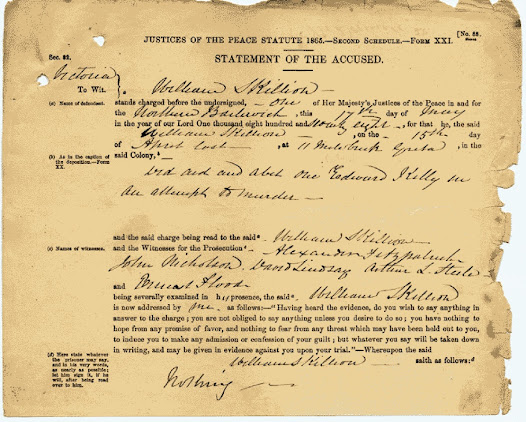 JUSTICES OF THE PEACE STATUTE 1865.—SECOND SCHEDULE.—FORM XXI.
[No. 88.
STATEMENT OF THE ACCUSED.
Sec. 92.
Victoria
To Wit. } William Skillion —
(a) Name of defendant.
stands charged before the undersigned, — one of Her Majesty's Justices of the Peace in and for
the Northern Bailiwick, this 17th day of May
in the year of our Lord One thousand eight hundred and seventy eight, for that he, the said
William Skillion —, on the — 15th day
of April last —, at 11 Mile Creek Greta, in the
(b) As in the caption of the deposition.—Form XX.
said Colony, —
did aid and abet one Edward Kelly in
an attempt to murder —
and the said charge being read to the said William Skillion —
(c) Names of witnesses.
and the Witnesses for the Prosecution — Alexander Fitzpatrick
John Nicholson, David Lindsay Arthur L. Steele
and Ernest Flood
being severally examined in his presence, the said William Skillion
is now addressed by me as follows:—"Having heard the evidence, do you wish to say anything in
answer to the charge; you are not obliged to say anything unless you desire to do so; you have nothing to
hope from any promise of favor, and nothing to fear from any threat which may have been held out to you,
to induce you to make any admission or confession of your guilt; but whatever you say will be taken down
in writing, and may be given in evidence against you upon your trial."—Whereupon the said
(d) Here state whatever the prisoner may say, and in his very words, as nearly as possible; let him sign it, if he will, after being read over to him.
William Skillion — saith as follows:d
Nothing —